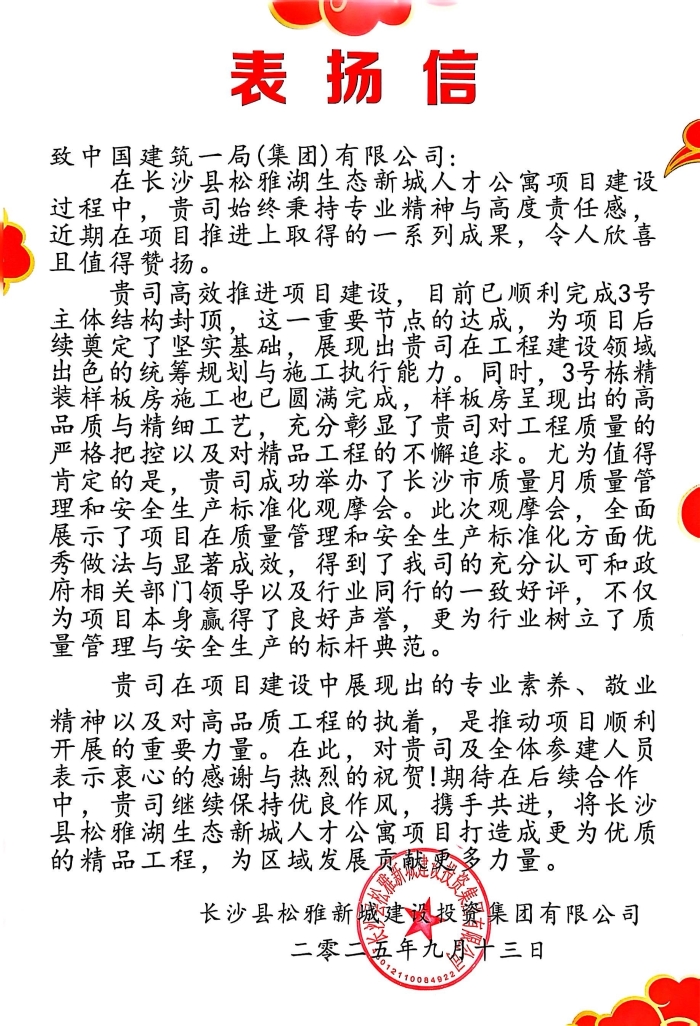 表扬信
致中国建筑一局(集团)有限公司:
在长沙县松雅湖生态新城人才公寓项目建设
过程中，贵司始终秉持专业精神与高度责任感，
近期在项目推进上取得的一系列成果，令人欣喜
且值得赞扬。
贵司高效推进项目建设，目前已顺利完成3号
主体结构封顶，这一重要节点的达成，为项目后
续奠定了坚实基础，展现出贵司在工程建设领域
出色的统筹规划与施工执行能力。同时，3号栋精
装样板房施工也已圆满完成，样板房呈现出的高
品质与精细工艺，充分彰显了贵司对工程质量的
严格把控以及对精品工程的不懈追求。尤为值得
肯定的是，贵司成功举办了长沙市质量月质量管
理和安全生产标准化观摩会。此次观摩会，全面
展示了项目在质量管理和安全生产标准化方面优
秀做法与显著成效，得到了我司的充分认可和政
府相关部门领导以及行业同行的一致好评，不仅
为项目本身赢得了良好声誉，更为行业树立了质
量管理与安全生产的标杆典范。
贵司在项目建设中展现出的专业素养、敬业
精神以及对高品质工程的执着，是推动项目顺利
开展的重要力量。在此，对贵司及全体参建人员
表示衷心的感谢与热烈的祝贺!期待在后续合作
中，贵司继续保持优良作风，携手共进，将长沙
县松雅湖生态新城人才公寓项目打造成更为优质
的精品工程，为区域发展贡献更多力量。
长沙县松雅新城建设投资集团有限公司
二零二五年九月十三日
长沙县松雅新城建设投资集团有限公司